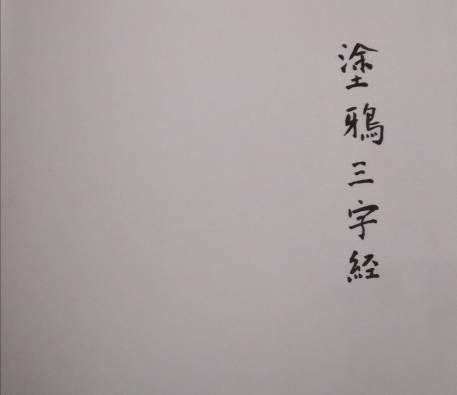 塗鴉三字経